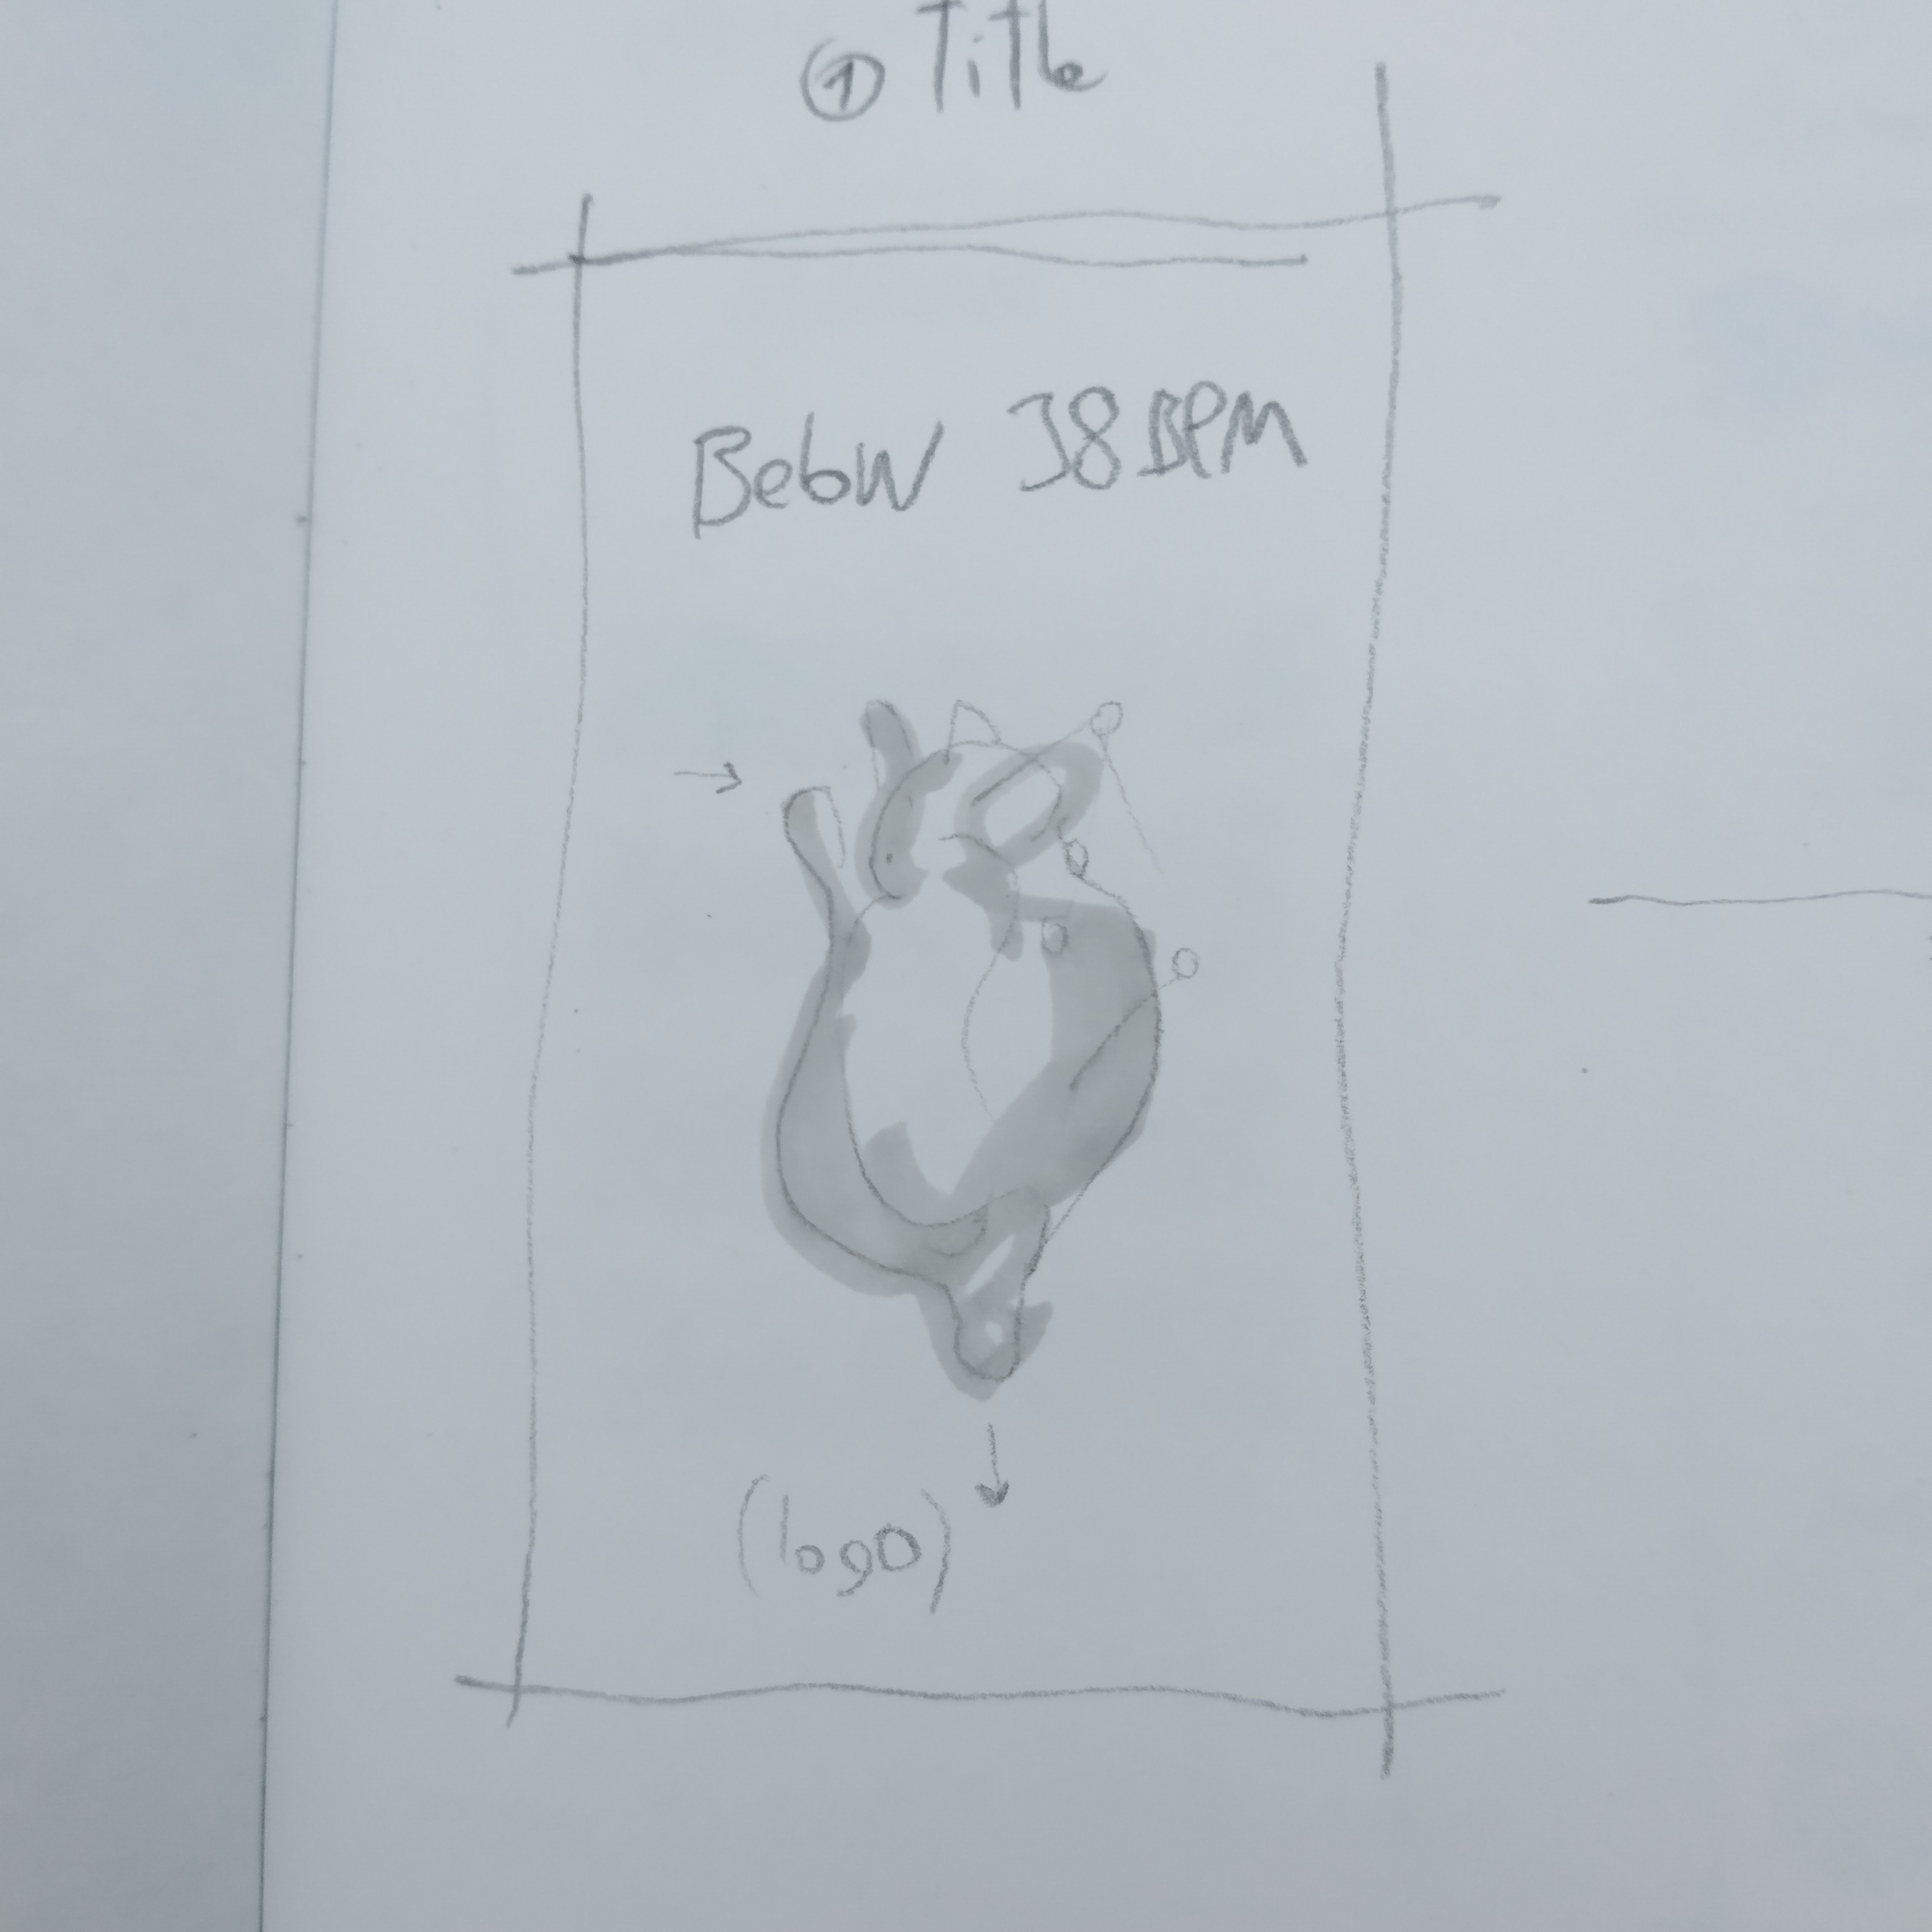 ① Title
Below 38 BPM
(logo)